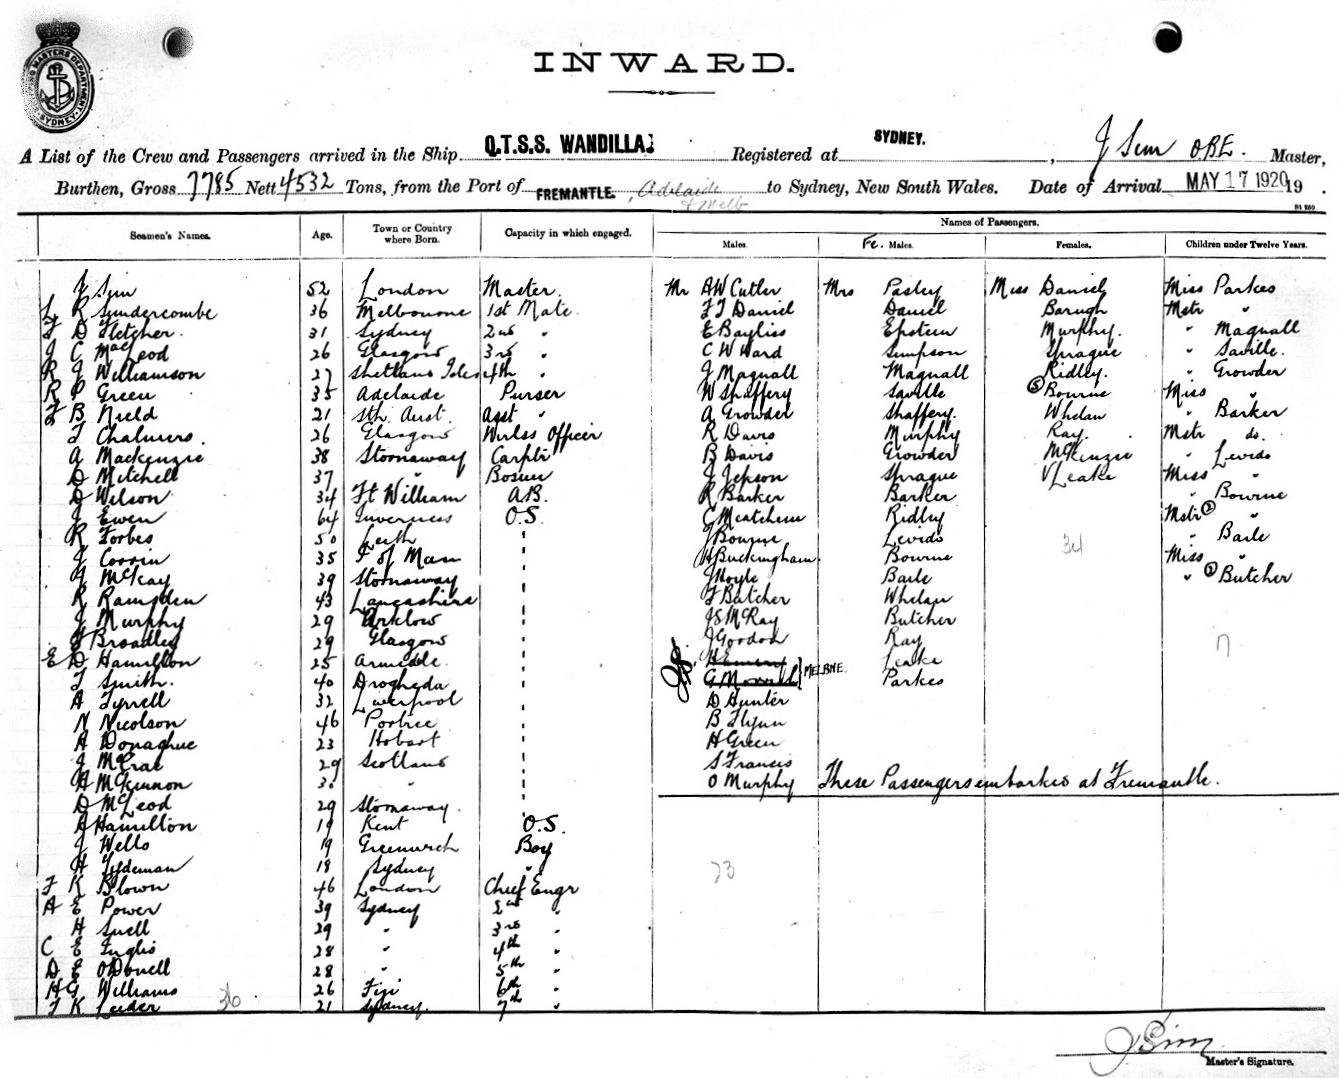 INWARD.
SHIPPING MASTERS DEPARTMENT
SYDNEY
A List of the Crew and Passengers arrived in the Ship Q.T.S.S. WANDILLA. Registered at SYDNEY. , J Sim O.B.E. Master,
Burthen, Gross 7785 Nett 4532 Tons, from the Port of FREMANTLE, Adelaide & Melb to Sydney, New South Wales. Date of Arrival MAY 17 1920 19 .
Seamen's Names. Age. Town or Country where Born. Capacity in which engaged. Names of Passengers.
Males. Fe. Males. Females. Children under Twelve Years.
J Sim 52 London Master. Mr A W Cutler Mrs Pasley Miss Daniel Miss Parkes
L R Sundercombe 36 Melbourne 1st Mate. F J Daniel Daniel Barugh Mstr "
F D Fletcher. 31 Sydney 2nd " E Bayliss Epstein Murphy. " Magnall
J C MacLeod 26 Glasgow 3rd " C W Ward Simpson Sprague " Saville.
R J Williamson 27 Shetland Isles 4th " J Magnall Magnall Ridley. " Growder
R P Green 35 Adelaide Purser W Shaffery Saville (5) Bourne Miss "
F B Nield 21 Sth Aust. Asst " A Growder Shaffery. Whelan " Barker
T Chalmers. 26 Glasgow Wirlss Officer R Davis Murphy Ray. Mstr do.
A Mackenzie 38 Stornaway Carptr B Davis Growder McKenzie " Levido
D Mitchell 37 " Bosun J Jepson Sprague V Leake Miss "
D Wilson 34 Ft William A.B. R Barker Barker " Bourne
J Ewen 64 Inverness O.S. C Meatchem Ridley Mstr (2) "
R Forbes 50 Leith " J Bourne Levido " Baile
J Corrin 35 I of Man " H Buckingham. Bourne 34 Miss "
G McKay 39 Stornaway " J Hoyle Baile " (1) Butcher
R Ramsden 43 Lancashire " F Butcher Whelan
J Murphy 29 Arklow " J S McRay Butcher
H Broadley 29 Glasgow " J Gordon Ray 17
E D Hamilton 25 Armidale. " H Emery Leake
T Smith. 40 Drogheda " G Morrish MELBNE. Parkes
A Tyrrell 32 Liverpool " D Hunter
N Nicolson 46 Portree " B Flynn
A Donaghue 23 Hobart " H Green
J McCrae 29 Scotland " S Francis
A McKinnon 30 " " O Murphy These Passengers embarked at Fremantle.
D McLeod 29 Stornaway. "
A Hamilton 19 Kent O.S.
J Wells 19 Greenwich Boy
H Tydeman 18 Sydney "
F K Blown 46 London Chief Engr 23
A E Power 39 Sydney 2nd "
H Snell 29 " 3rd "
C E Inglis 28 " 4th "
D E O'Donell 28 " 5th "
H G Williams 26 Fiji 6th "
F K Leider 36 21 Sydney. 7th "
J Sim
Master's Signature.